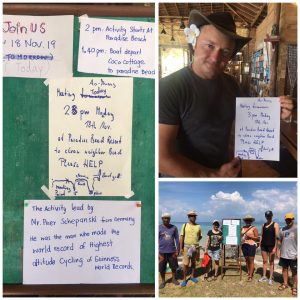 Join US
18 Nov. 19
TOMORROW
Today
2 pm. Activity Starts At
Paradise Beach
1.40 pm. Boat depart
Coco cottage
to paradise Beach
Meeting Today
28 pm Monday
18th Nov.
at Paradise Beach Resort
to clean neighbor Beach
PLease HELP
The Activity lead by
Mr. Peer Schepanski from Germany
He was the man who made the
world record of Highest
altitude Cycling of Guinness
World Records.
Meeting Tomorrow
3 pm Monday
at Paradise Beach Resort
to clean neighbor Beach
Please HELP